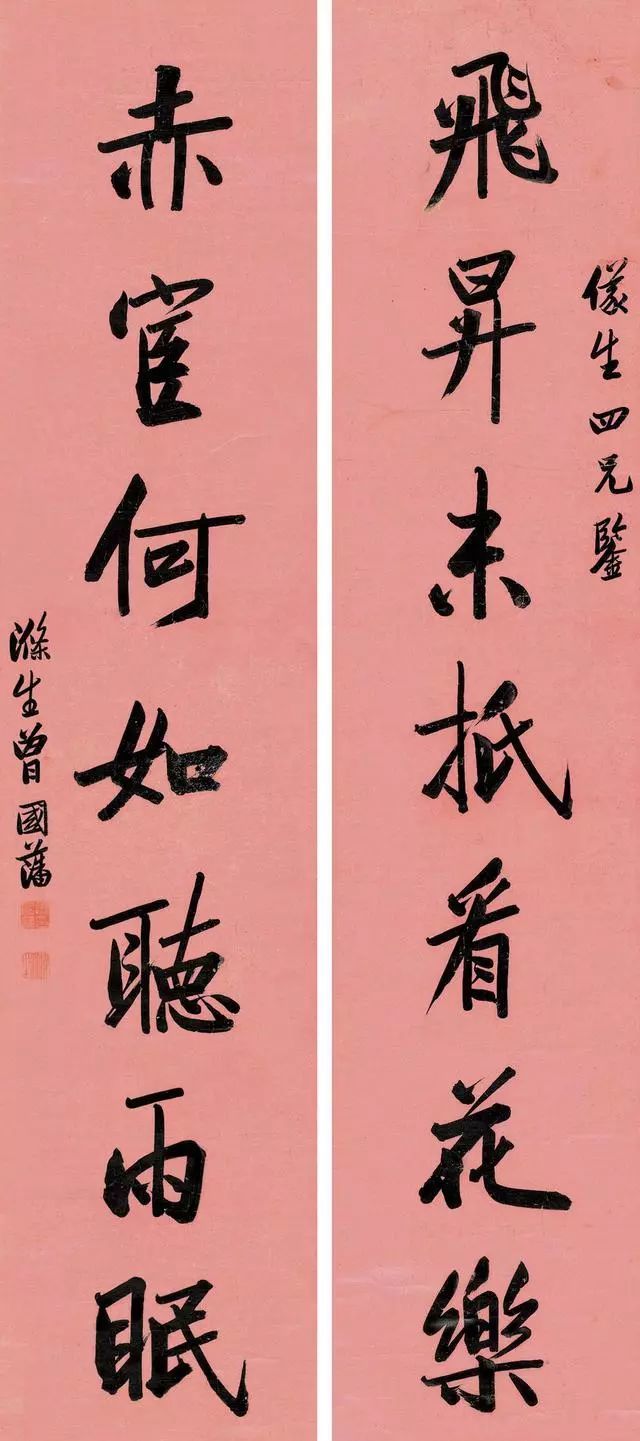 儀生四兄鑒
飛昇未抵看花樂
赤宦何如聽雨眠
滌生曾國藩